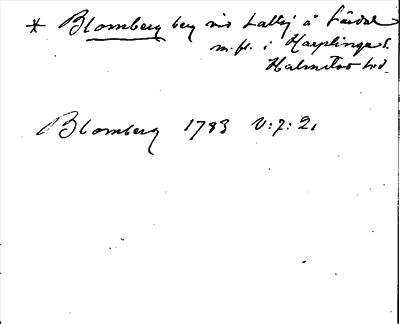 * Blomberg berg vid Lallej å Lärdal
m.fl. i Harplinge s.
Halmstad hd.
Blomberg 1793 V:7:2,